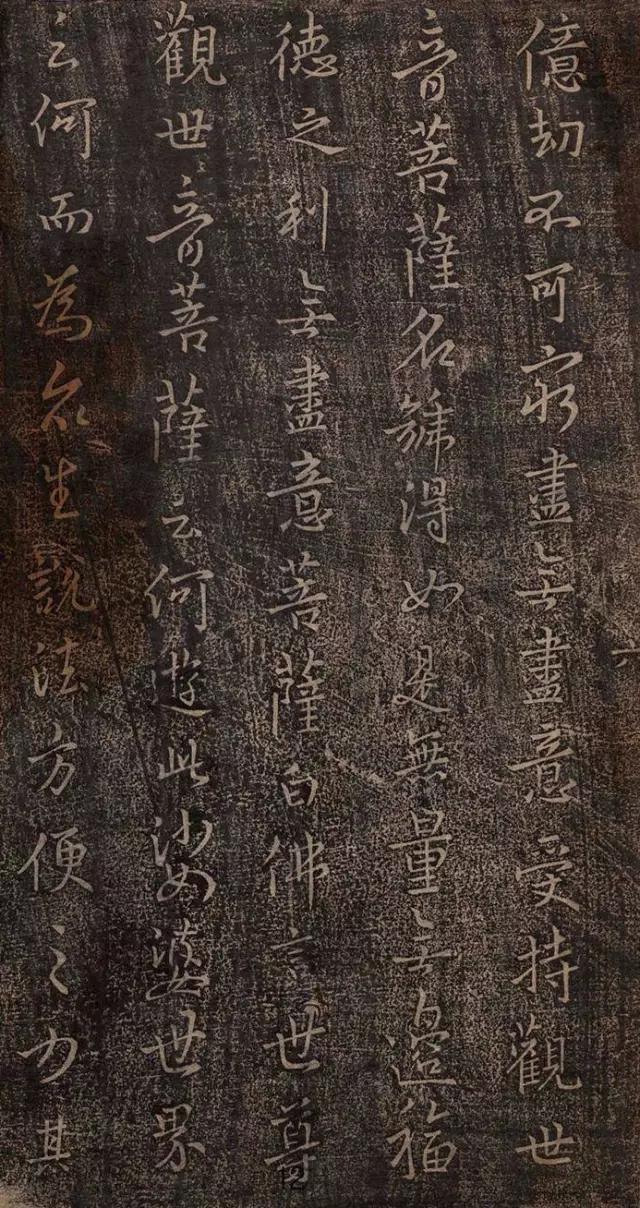 億劫不可窮盡无盡意受持觀世
音菩薩名號得如是無量无邊福
德之利无盡意菩薩白佛言世尊
觀世音菩薩云何遊此娑婆世界
云何而為眾生說法方便之力其
六